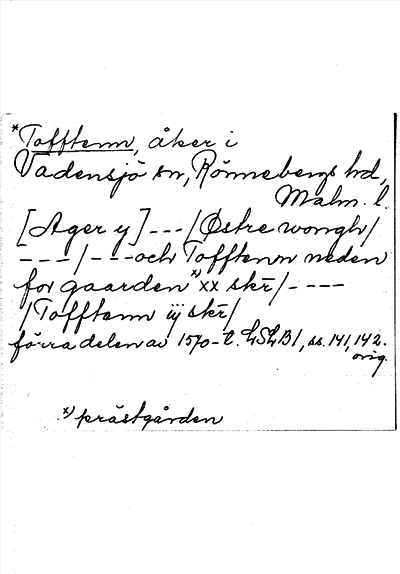 *Tofftenn, åker i
Vadensjö sn, Rönnebergs hd,
Malm. l.
[Ager y] ---/Østre wongh/
---/---och Tofftenn neden
for gaarden x) xx skr/----
/Tofftenn iij skr/
förra delen av 1570-t. LSLB1, ss. 141, 142.
orig.
x) prästgården